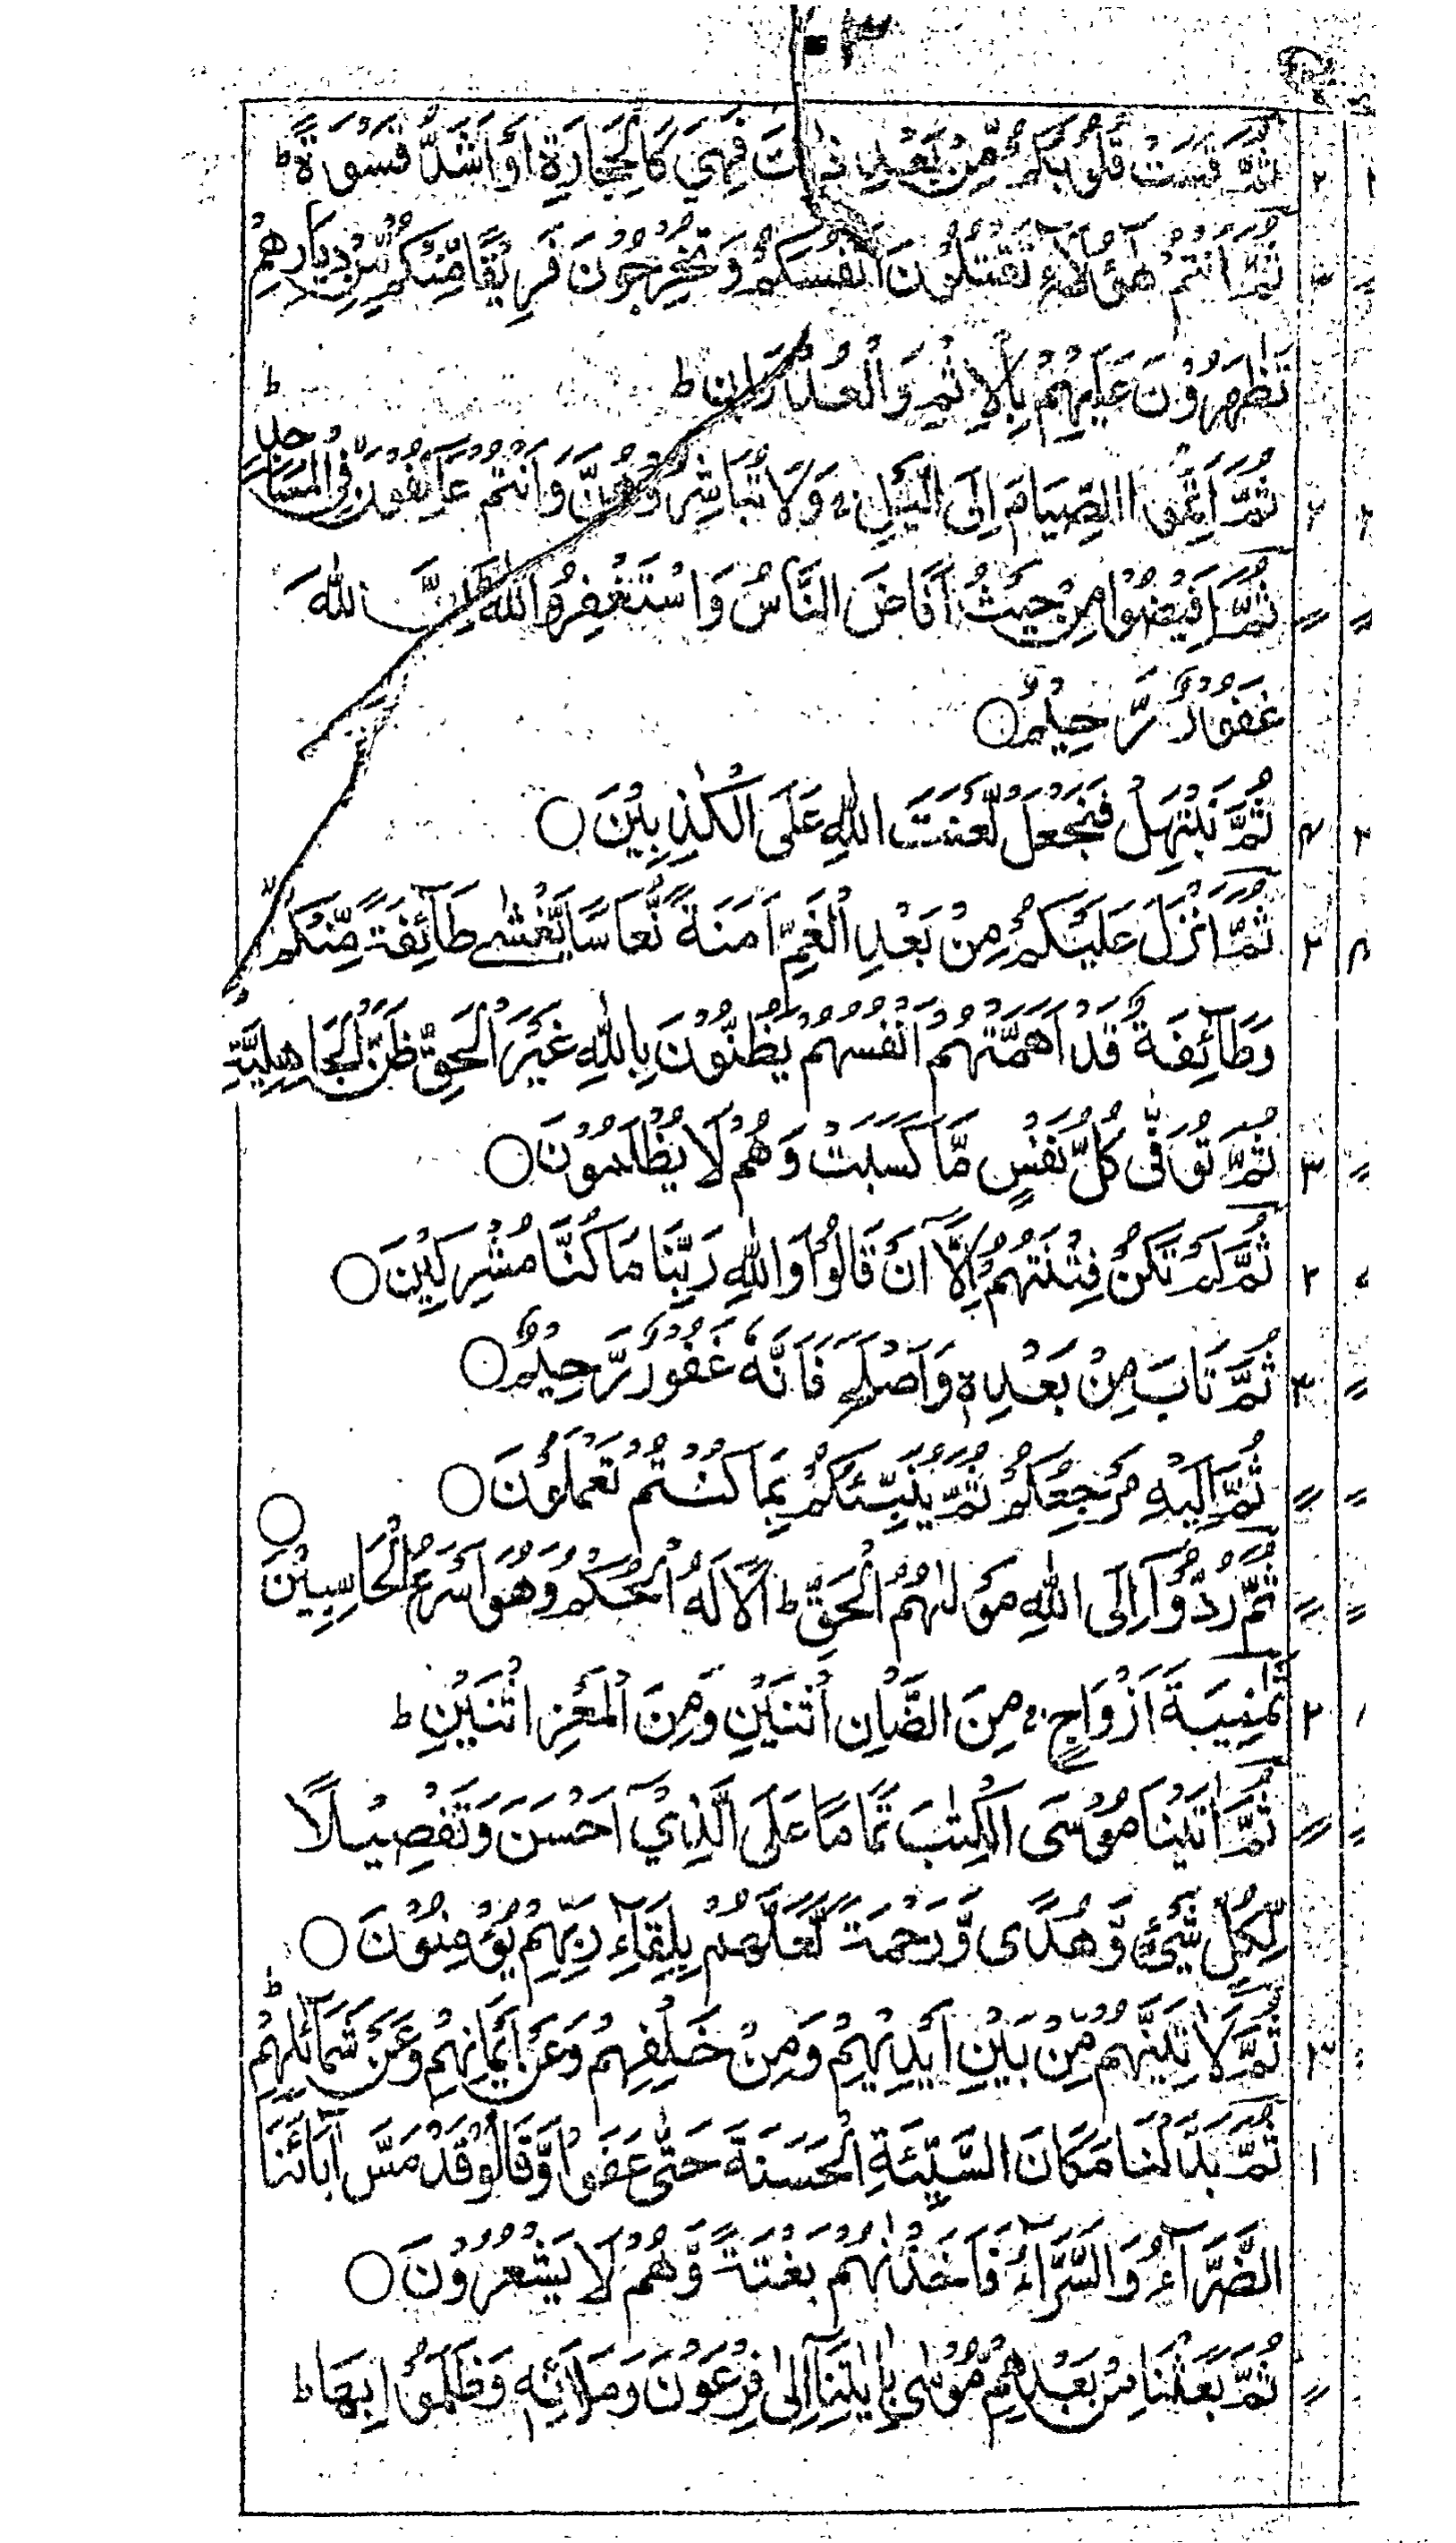 ثُمَّ قَسَتْ قُلُوْبُكُمْ مِّنْ بَعْدِ ذٰلِكَ فَهِيَ كَالْحِجَارَةِ اَوْ اَشَدُّ قَسْوَةً ط ٢
ثُمَّ اَنْتُمْ هٰٓؤُلَآءِ تَقْتُلُوْنَ اَنْفُسَكُمْ وَتُخْرِجُوْنَ فَرِيْقًا مِّنْكُمْ مِّنْ دِيَارِهِمْ
تَظٰهَرُوْنَ عَلَيْهِمْ بِالْاِثْمِ وَالْعُدْوَانِ ط
ثُمَّ اَتِمُّوا الصِّيَامَ اِلَى الَّيْلِ ج وَلَا تُبَاشِرُوْهُنَّ وَاَنْتُمْ عَاكِفُوْنَ فِي الْمَسَاجِدِ ط ٢
ثُمَّ اَفِيْضُوْا مِنْ حَيْثُ اَفَاضَ النَّاسُ وَاسْتَغْفِرُوا اللّٰهَ اِنَّ اللّٰهَ
غَفُوْرٌ رَّحِيْمٌ ○
ثُمَّ نَبْتَهِلْ فَنَجْعَلْ لَّعْنَتَ اللّٰهِ عَلَى الْكٰذِبِيْنَ ○ ٣
ثُمَّ اَنْزَلَ عَلَيْكُمْ مِنْ بَعْدِ الْغَمِّ اَمَنَةً نُّعَاسًا يَّغْشٰى طَآئِفَةً مِّنْكُمْ لا ٢ ٤
وَطَآئِفَةٌ قَدْ اَهَمَّتْهُمْ اَنْفُسُهُمْ يَظُنُّوْنَ بِاللّٰهِ غَيْرَ الْحَقِّ ظَنَّ الْجَاهِلِيَّةِ
ثُمَّ تُوَفّٰى كُلُّ نَفْسٍ مَّا كَسَبَتْ وَهُمْ لَا يُظْلَمُوْنَ ○ ٣
ثُمَّ لَمْ تَكُنْ فِتْنَتُهُمْ اِلَّآ اَنْ قَالُوْا وَاللّٰهِ رَبِّنَا مَا كُنَّا مُشْرِكِيْنَ ○ ٢
ثُمَّ تَابَ مِنْ بَعْدِهٖ وَاَصْلَحَ فَاَنَّهٗ غَفُوْرٌ رَّحِيْمٌ ○ ٣
ثُمَّ اِلَيْهِ مَرْجِعُكُمْ ثُمَّ يُنَبِّئُكُمْ بِمَا كُنْتُمْ تَعْمَلُوْنَ ○
ثُمَّ رُدُّوْٓا اِلَى اللّٰهِ مَوْلٰهُمُ الْحَقِّ ط اَلَا لَهُ الْحُكْمُ وَهُوَ اَسْرَعُ الْحَاسِبِيْنَ ○
ثَمٰنِيَةَ اَزْوَاجٍ ج مِنَ الضَّاْنِ اثْنَيْنِ وَمِنَ الْمَعْزِ اثْنَيْنِ ط ٢
ثُمَّ اٰتَيْنَا مُوْسَى الْكِتٰبَ تَمَامًا عَلَى الَّذِيْٓ اَحْسَنَ وَتَفْصِيْلًا
لِّكُلِّ شَيْءٍ وَّهُدًى وَّرَحْمَةً لَّعَلَّهُمْ بِلِقَآءِ رَبِّهِمْ يُؤْمِنُوْنَ ○
ثُمَّ لَاٰتِيَنَّهُمْ مِّنْ بَيْنِ اَيْدِيْهِمْ وَمِنْ خَلْفِهِمْ وَعَنْ اَيْمَانِهِمْ وَعَنْ شَمَآئِلِهِمْ ط ٣
ثُمَّ بَدَّلْنَا مَكَانَ السَّيِّئَةِ الْحَسَنَةَ حَتّٰى عَفَوْا وَّقَالُوْا قَدْ مَسَّ اٰبَآئَنَا ١
الضَّرَّآءُ وَالسَّرَّآءُ فَاَخَذْنٰهُمْ بَغْتَةً وَّهُمْ لَا يَشْعُرُوْنَ ○
ثُمَّ بَعَثْنَا مِنْ بَعْدِهِمْ مُّوْسٰى بِاٰيٰتِنَآ اِلٰى فِرْعَوْنَ وَمَلَائِهٖ وَظَلَمُوْا بِهَا ط